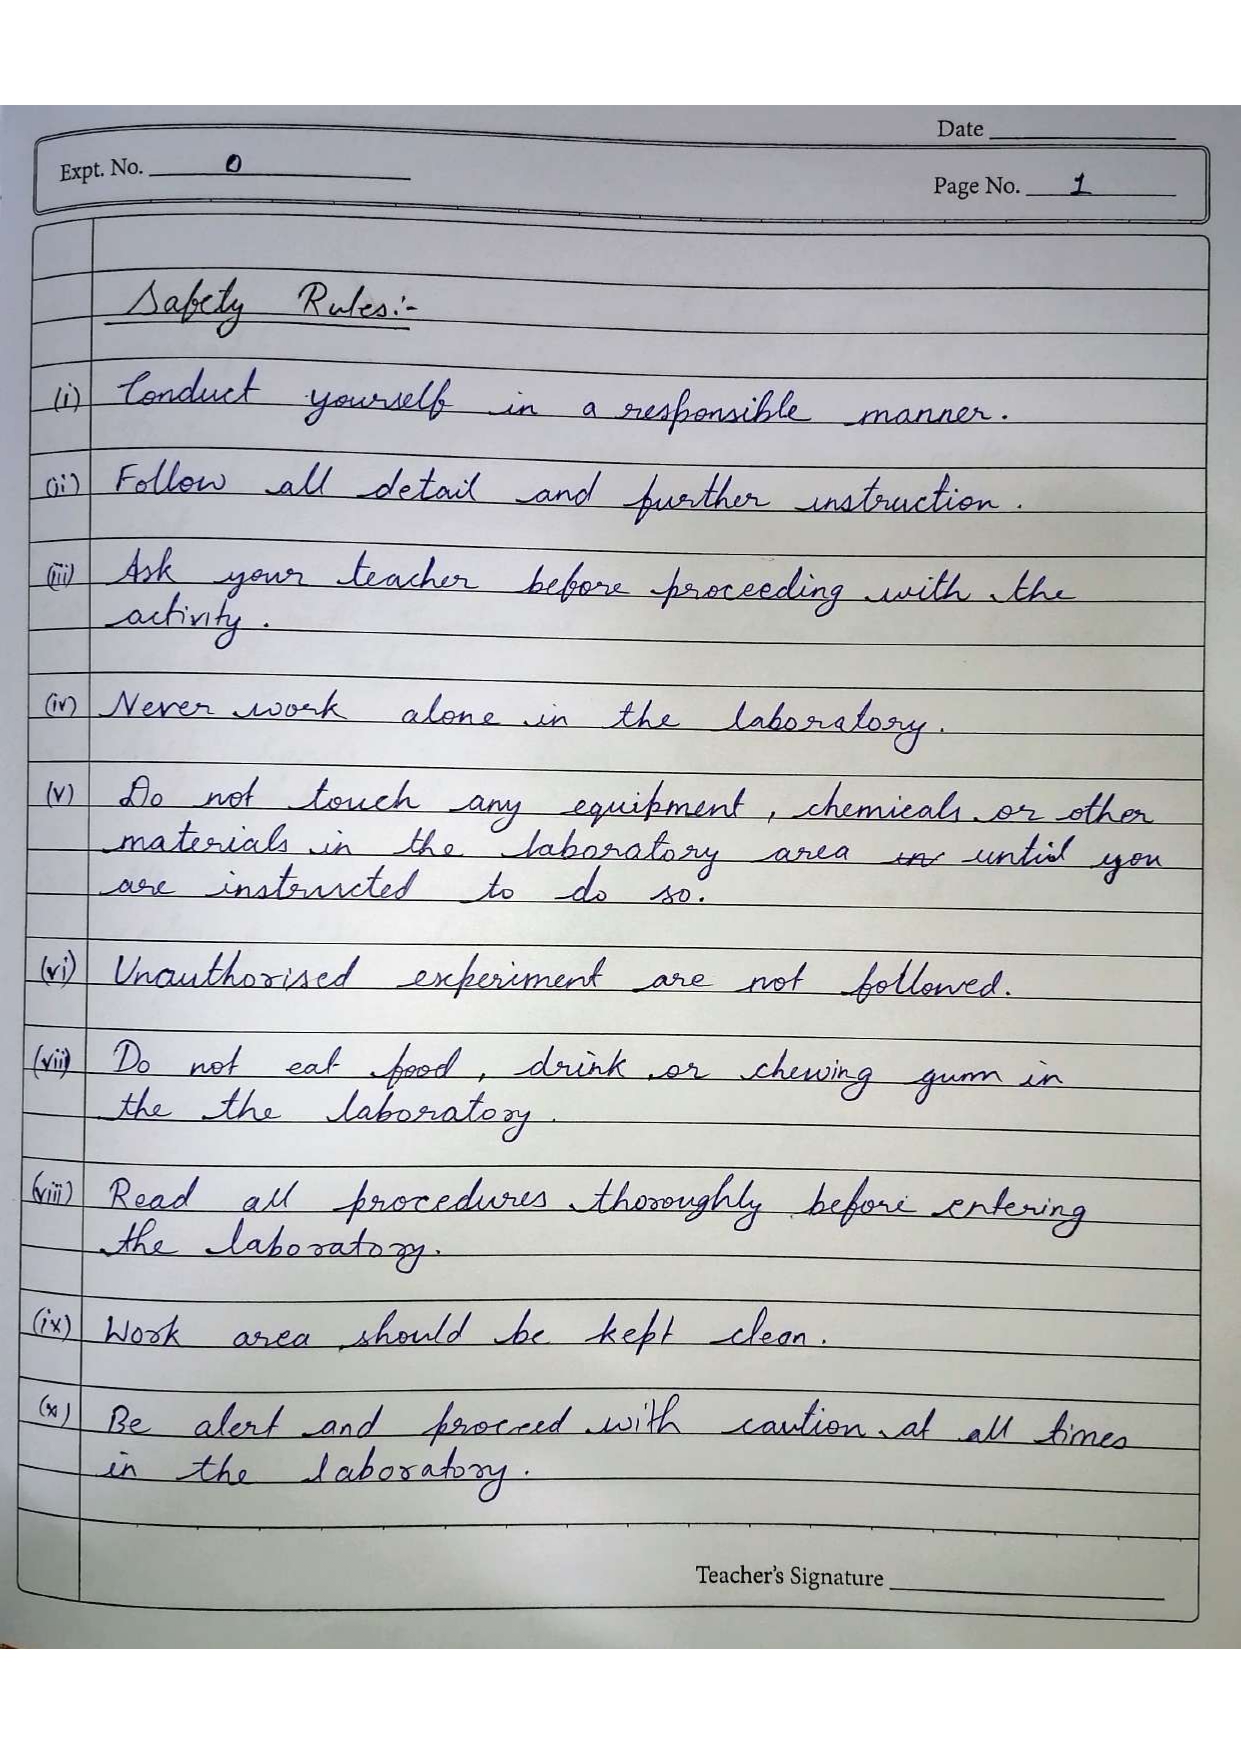 Date
Expt. No. 0
Page No. 1
Safety Rules:-
(i) Conduct yourself in a responsible manner.
(ii) Follow all detail and further instruction.
(iii) Ask your teacher before proceeding with the
activity.
(iv) Never work alone in the laboratory.
(v) Do not touch any equipment, chemicals or other
materials in the laboratory area in until you
are instructed to do so.
(vi) Unauthorised experiment are not followed.
(vii) Do not eat food, drink or chewing gum in
the the laboratory.
(viii) Read all procedures thoroughly before entering
the laboratory.
(ix) Work area should be kept clean.
(x) Be alert and proceed with caution at all times
in the laboratory.
Teacher's Signature